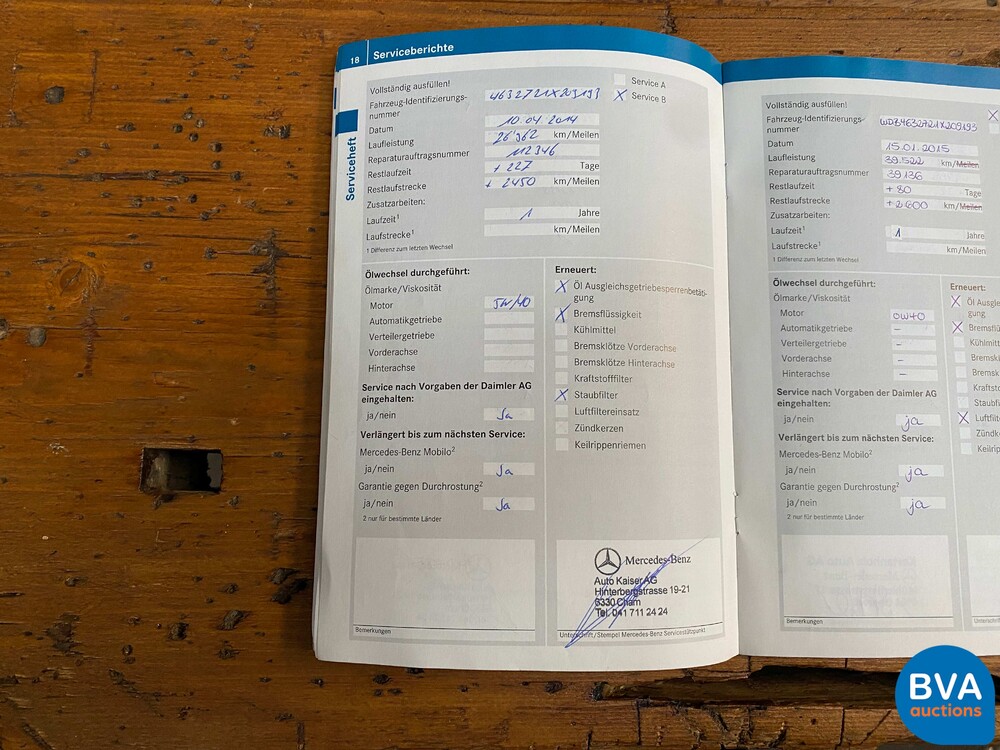 18 Serviceberichte
Serviceheft
Vollständig ausfüllen!
Service A
X Service B
Fahrzeug-Identifizierungs-
nummer 4632721X209193
Datum 10.04.2014
Laufleistung 26'962 km/Meilen
Reparaturauftragsnummer 112346
Restlaufzeit + 227 Tage
Restlaufstrecke + 2450 km/Meilen
Zusatzarbeiten:
Laufzeit¹ 1 Jahre
Laufstrecke¹ km/Meilen
1 Differenz zum letzten Wechsel
Ölwechsel durchgeführt:
Ölmarke/Viskosität
Motor 5W/40
Automatikgetriebe
Verteilergetriebe
Vorderachse
Hinterachse
Service nach Vorgaben der Daimler AG
eingehalten:
ja/nein Ja
Verlängert bis zum nächsten Service:
Mercedes-Benz Mobilo²
ja/nein Ja
Garantie gegen Durchrostung²
ja/nein Ja
2 nur für bestimmte Länder
Bemerkungen
Erneuert:
X Öl Ausgleichsgetriebesperrenbetäti-
gung
X Bremsflüssigkeit
Kühlmittel
Bremsklötze Vorderachse
Bremsklötze Hinterachse
Kraftstofffilter
X Staubfilter
Luftfiltereinsatz
Zündkerzen
Keilrippenriemen
Mercedes-Benz
Auto Kaiser AG
Hinterbergstrasse 19-21
6330 Cham
Tel. 041 711 24 24
Unterschrift/Stempel Mercedes-Benz Servicestützpunkt
Vollständig ausfüllen!
X
Fahrzeug-Identifizierungs-
nummer WDB4632721X209193
Datum 15.01.2015
Laufleistung 39.522 km/Meilen
Reparaturauftragsnummer 39136
Restlaufzeit + 80 Tage
Restlaufstrecke + 2600 km/Meilen
Zusatzarbeiten:
Laufzeit¹ 1 Jahre
Laufstrecke¹ km/Meilen
1 Differenz zum letzten Wechsel
Ölwechsel durchgeführt:
Ölmarke/Viskosität
Motor 0W40
Automatikgetriebe –
Verteilergetriebe –
Vorderachse –
Hinterachse –
Service nach Vorgaben der Daimler AG
eingehalten:
ja/nein ja
Verlängert bis zum nächsten Service:
Mercedes-Benz Mobilo²
ja/nein ja
Garantie gegen Durchrostung²
ja/nein ja
2 nur für bestimmte Länder
Bemerkungen
Erneuert:
X Öl Ausgle
gung
X Bremsflü
Kühlmitt
Bremsk
Bremsk
Kraftsto
Staubf
X Luftfilt
Zündk
Keilrip
Unterschrif
BVA
auctions